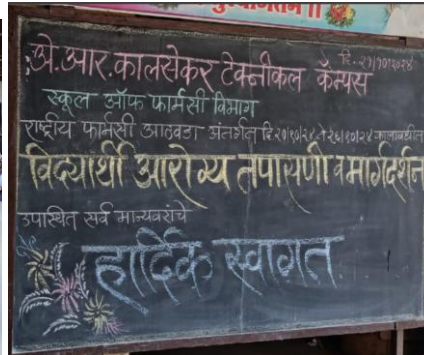 दि. २१/१०/२०२४
ॲे.आर.कालसेकर टेक्नीकल कॅम्पस
स्कूल ऑफ फार्मसी विभाग
राष्ट्रीय फार्मसी आठवडा अंतर्गत दि २०/१०/२४ ते २६/१०/२४ कालावधीत
विद्यार्थी आरोग्य तपासणी व मार्गदर्शन
उपास्थित सर्व मान्यवरांचे
हार्दिक स्वागत